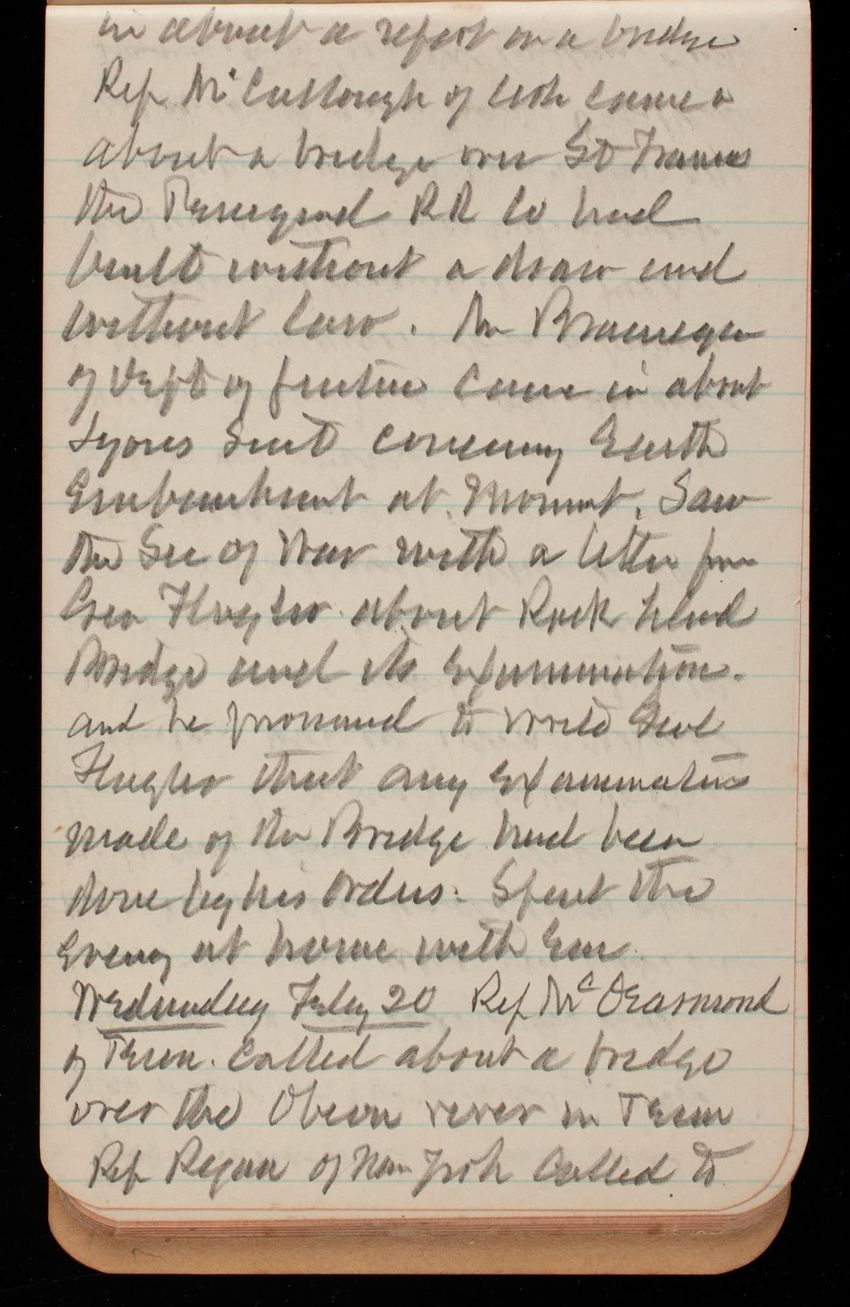 in about a report on a bridge
Rep McCullough of Ark came
about a bridge over St Francis
the Paragould RR Co had
built without a draw and
without law. Mr Brannegan
of Dept of Justice came in about
Lyons Suit concerning Earth
Embankment at. Saw
the Sec of War with a letter from
Gen Flagler about Rock Island
Bridge and its Examination.
and he promised to write Genl
Flagler that any Examination
made of the Bridge had been
done by his orders. Spent the
Eveng at home with Em
Wednesday Feby 20 Rep McDearmond
of Tenn. called about a bridge
over the Obion river in Tenn
Rep Regan of New York called to